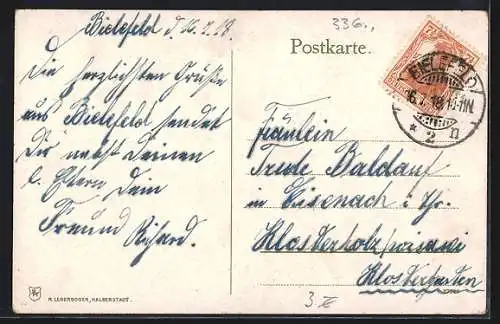 Bielefeld d. 16.7.18
336.,
Postkarte.
7½
BIELEFELD
16.7.18. 10-11N.
* 2 n
Die herzlichsten Grüße
aus Bielefeld sendet
Dir nebst Deinen
l. Eltern Dein
Freund Richard.
Fräulein
Trude Baldauf
in Eisenach i. Thr.
Klosterholz
Klostergarten
3 X
R. LEDERBOGEN, HALBERSTADT.